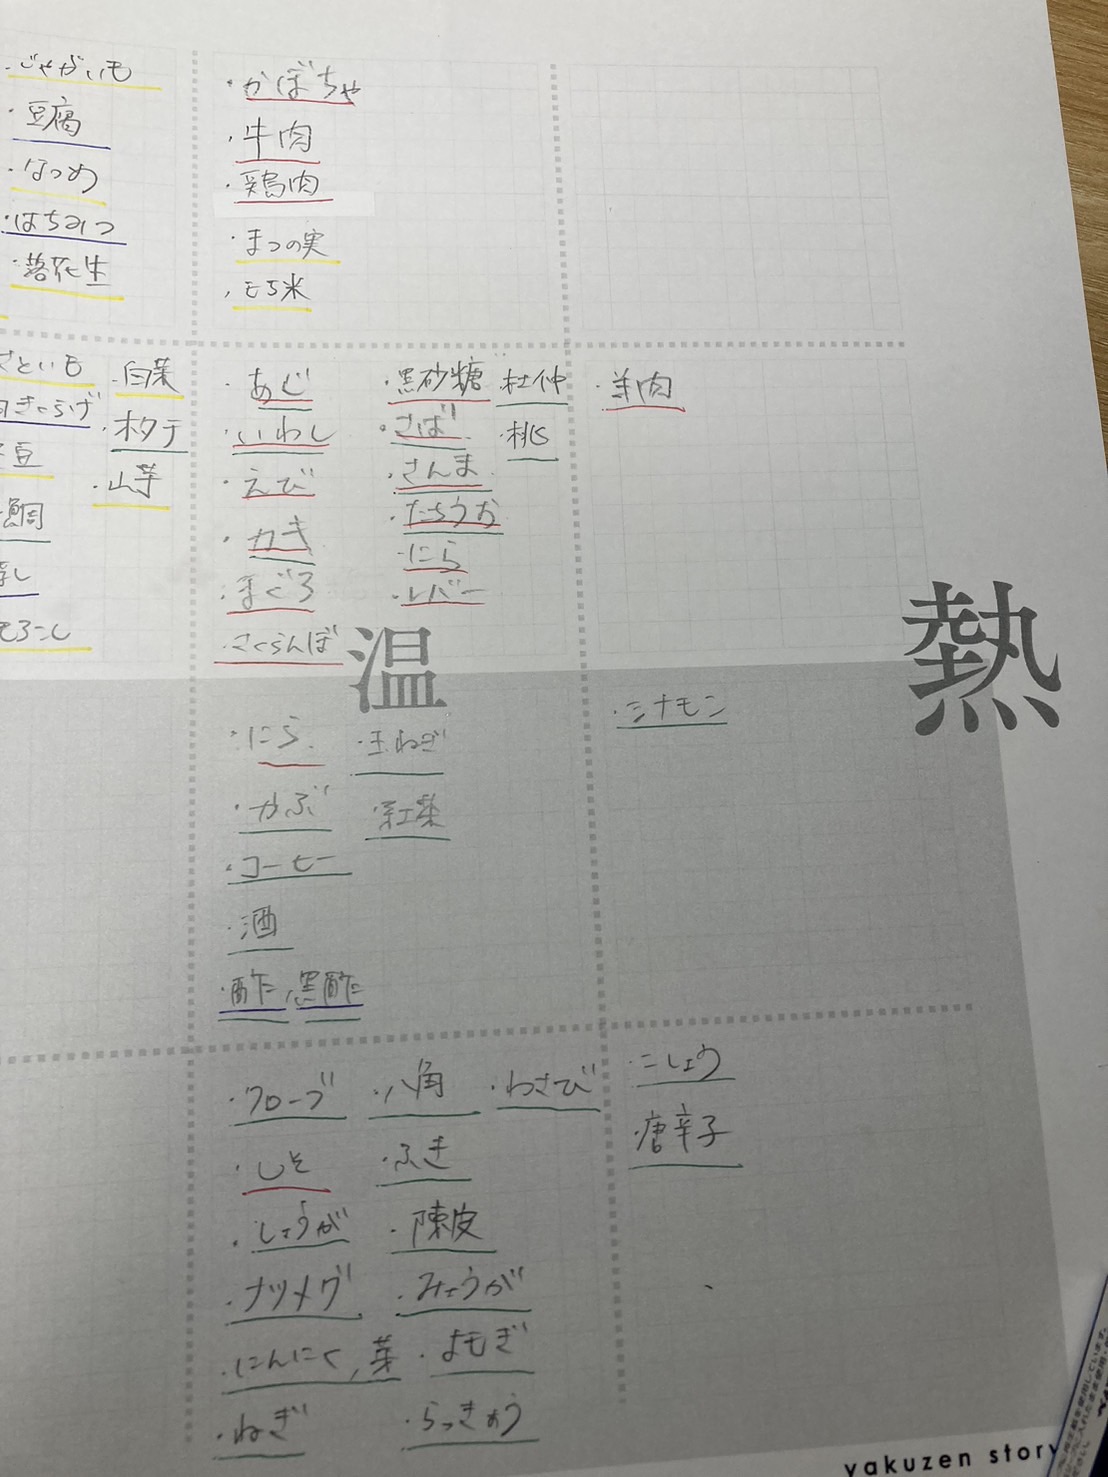 ・じゃがいも
・豆腐
・なつめ
・はちみつ
・落花生
・かぼちゃ
・牛肉
・鶏肉
・まつの実
・もち米
さといも ・白菜
白きくらげ ・ホタテ
豆 ・山芋
鯛
乳
とうもろこし
・あじ ・黒砂糖 ・杜仲
・いわし ・さば ・桃
・えび ・さんま
・カキ ・たちうお
・まぐろ ・にら
・さくらんぼ ・レバー
・羊肉
温
熱
・にら ・玉ねぎ
・かぶ ・紅茶
・コーヒー
・酒
・酢、黒酢
・シナモン
・クローブ ・八角 ・わさび
・しそ ・ふき
・しょうが ・陳皮
・ナツメグ ・みょうが
・にんにく、芽 ・よもぎ
・ねぎ ・らっきょう
・こしょう
・唐辛子
yakuzen story